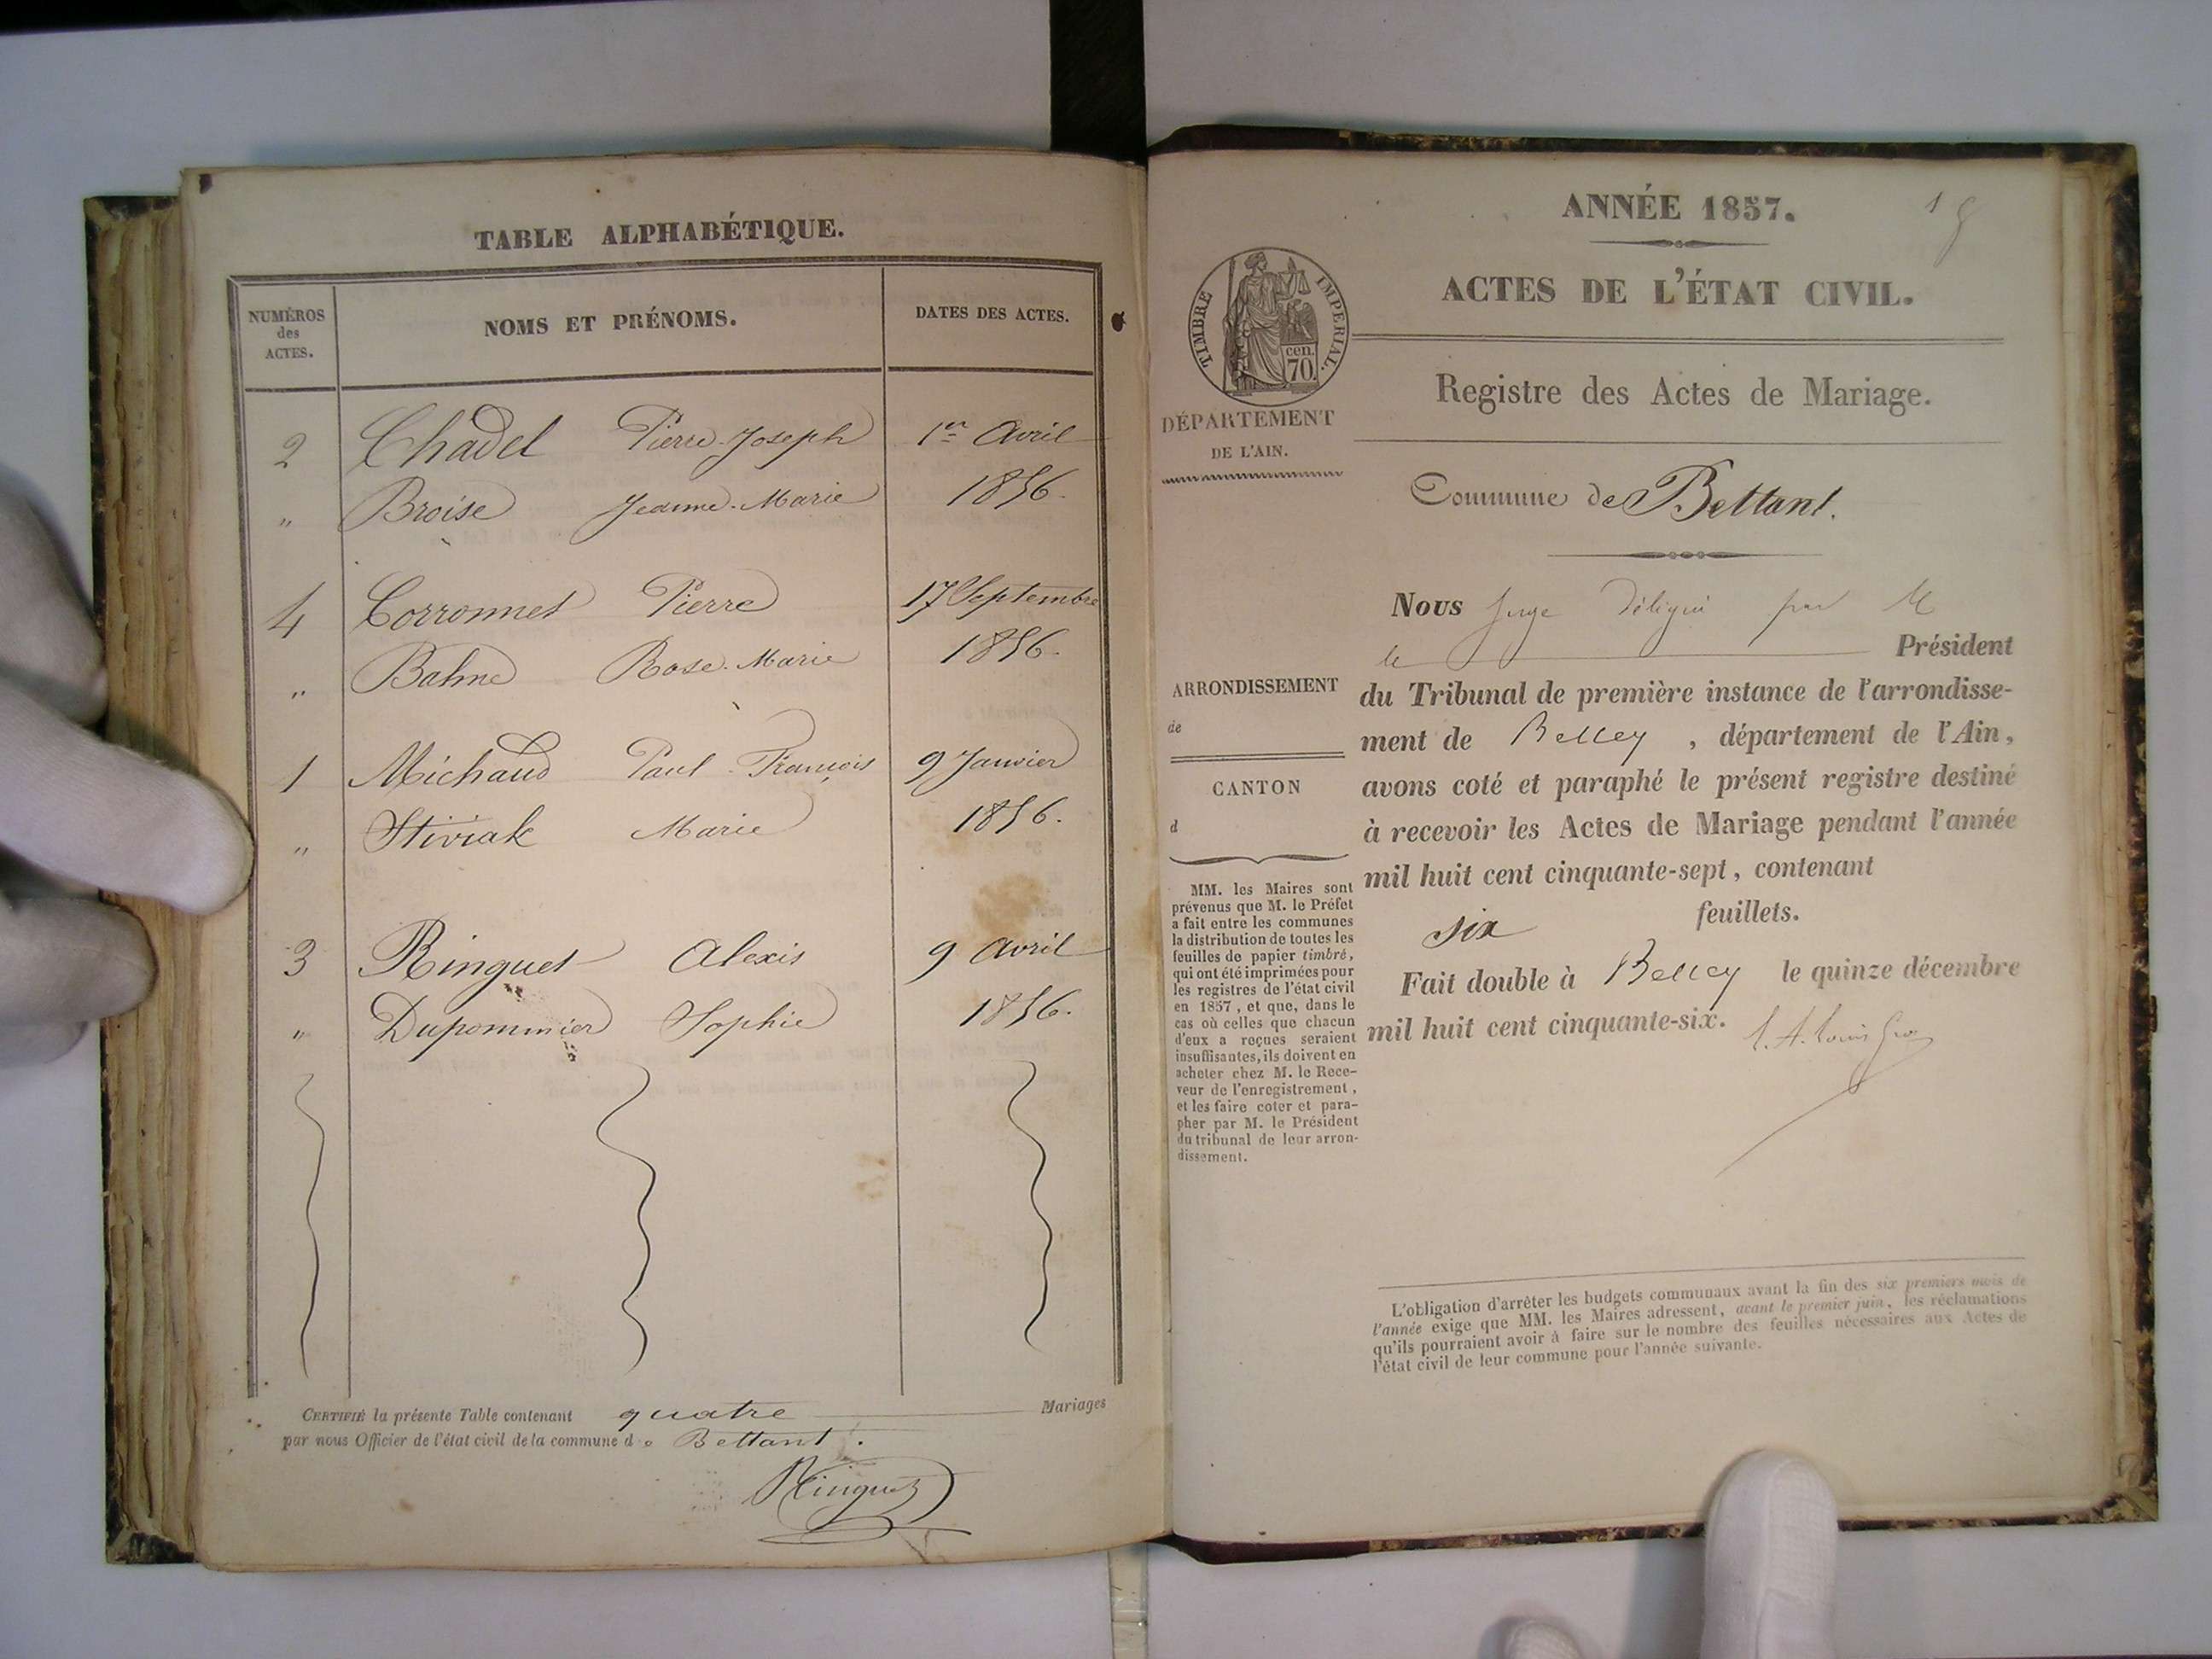 TABLE ALPHABÉTIQUE.
NUMÉROS des ACTES.
NOMS ET PRÉNOMS.
DATES DES ACTES.
2 Chadel Pierre-Joseph 1er Avril
" Broise Jeanne-Marie 1856.
4 Corronnet Pierre 17 Septembre
" Balme Rose-Marie 1856.
1 Michaud Paul-François 9 Janvier
" Marie 1856.
3 Ringuet Alexis 9 Avril
" Dupommier Sophie 1856.
CERTIFIÉ la présente Table contenant quatre Mariages
par nous Officier de l'état civil de la commune de Bettant.
Ringuet
ANNÉE 1857.
1
ACTES DE L'ÉTAT CIVIL.
TIMBRE IMPERIAL.
cen.
70
DÉPARTEMENT
DE L'AIN.
Registre des Actes de Mariage.
Commune de Bettant.
Nous Juge Délégué par M
le Président
du Tribunal de première instance de l'arrondisse-
ment de Belley, département de l'Ain,
avons coté et paraphé le présent registre destiné
à recevoir les Actes de Mariage pendant l'année
mil huit cent cinquante-sept, contenant
six feuillets.
Fait double à Belley le quinze décembre
mil huit cent cinquante-six.
ARRONDISSEMENT
de
CANTON
d
MM. les Maires sont
prévenus que M. le Préfet
a fait entre les communes
la distribution de toutes les
feuilles de papier timbré,
qui ont été imprimées pour
les registres de l'état civil
en 1857, et que, dans le
cas où celles que chacun
d'eux a reçues seraient
insuffisantes, ils doivent en
acheter chez M. le Rece-
veur de l'enregistrement,
et les faire coter et para-
pher par M. le Président
du tribunal de leur arron-
dissement.
L'obligation d'arrêter les budgets communaux avant la fin des six premiers mois de
l'année exige que MM. les Maires adressent, avant le premier juin, les réclamations
qu'ils pourraient avoir à faire sur le nombre des feuilles nécessaires aux Actes de
l'état civil de leur commune pour l'année suivante.